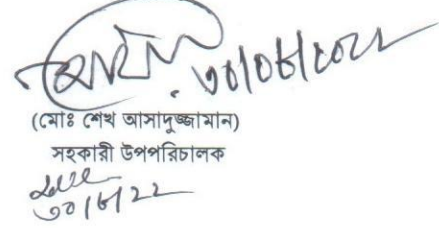 ৩০/০৬/২০২২
(মোঃ শেখ আসাদুজ্জামান)
সহকারী উপপরিচালক
৩০/৬/২২